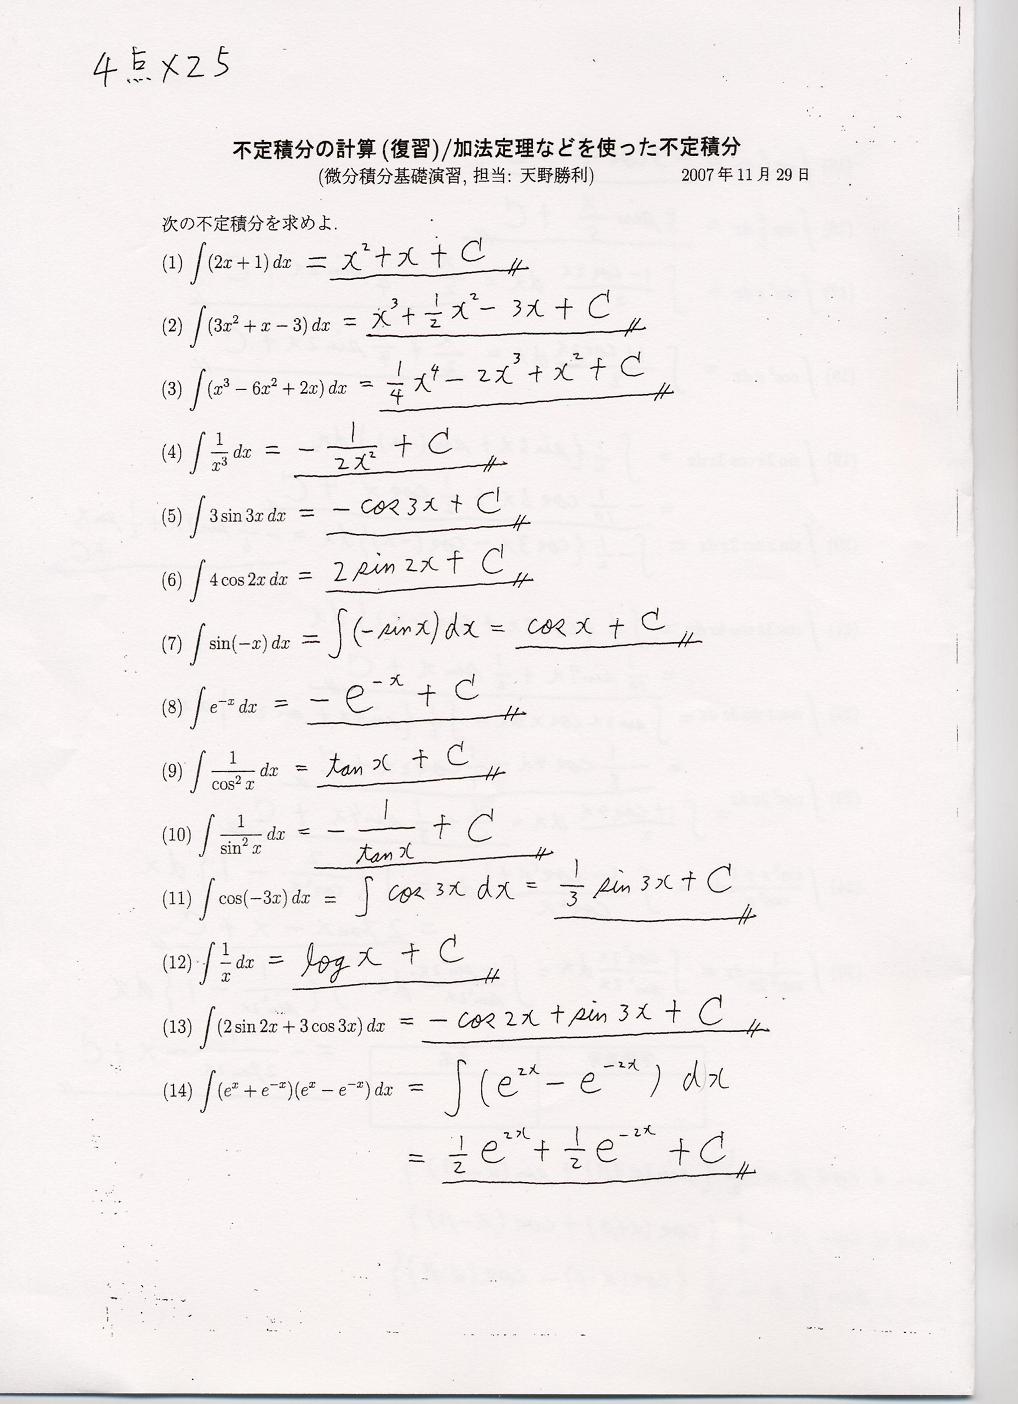 4点×25
不定積分の計算 (復習)/加法定理などを使った不定積分
(微分積分基礎演習, 担当: 天野勝利) 2007年11月29日
次の不定積分を求めよ.
(1) ∫(2x + 1) dx = x² + x + C
(2) ∫(3x² + x − 3) dx = x³ + 1/2 x² − 3x + C
(3) ∫(x³ − 6x² + 2x) dx = 1/4 x⁴ − 2x³ + x² + C
(4) ∫ 1/x³ dx = − 1/2x² + C
(5) ∫ 3 sin 3x dx = − cos 3x + C
(6) ∫ 4 cos 2x dx = 2 sin 2x + C
(7) ∫ sin(−x) dx = ∫(−sin x) dx = cos x + C
(8) ∫ e⁻ˣ dx = − e⁻ˣ + C
(9) ∫ 1/cos² x dx = tan x + C
(10) ∫ 1/sin² x dx = − 1/tan x + C
(11) ∫ cos(−3x) dx = ∫ cos 3x dx = 1/3 sin 3x + C
(12) ∫ 1/x dx = log x + C
(13) ∫(2 sin 2x + 3 cos 3x) dx = − cos 2x + sin 3x + C
(14) ∫(eˣ + e⁻ˣ)(eˣ − e⁻ˣ) dx = ∫(e²ˣ − e⁻²ˣ) dx
= 1/2 e²ˣ + 1/2 e⁻²ˣ + C